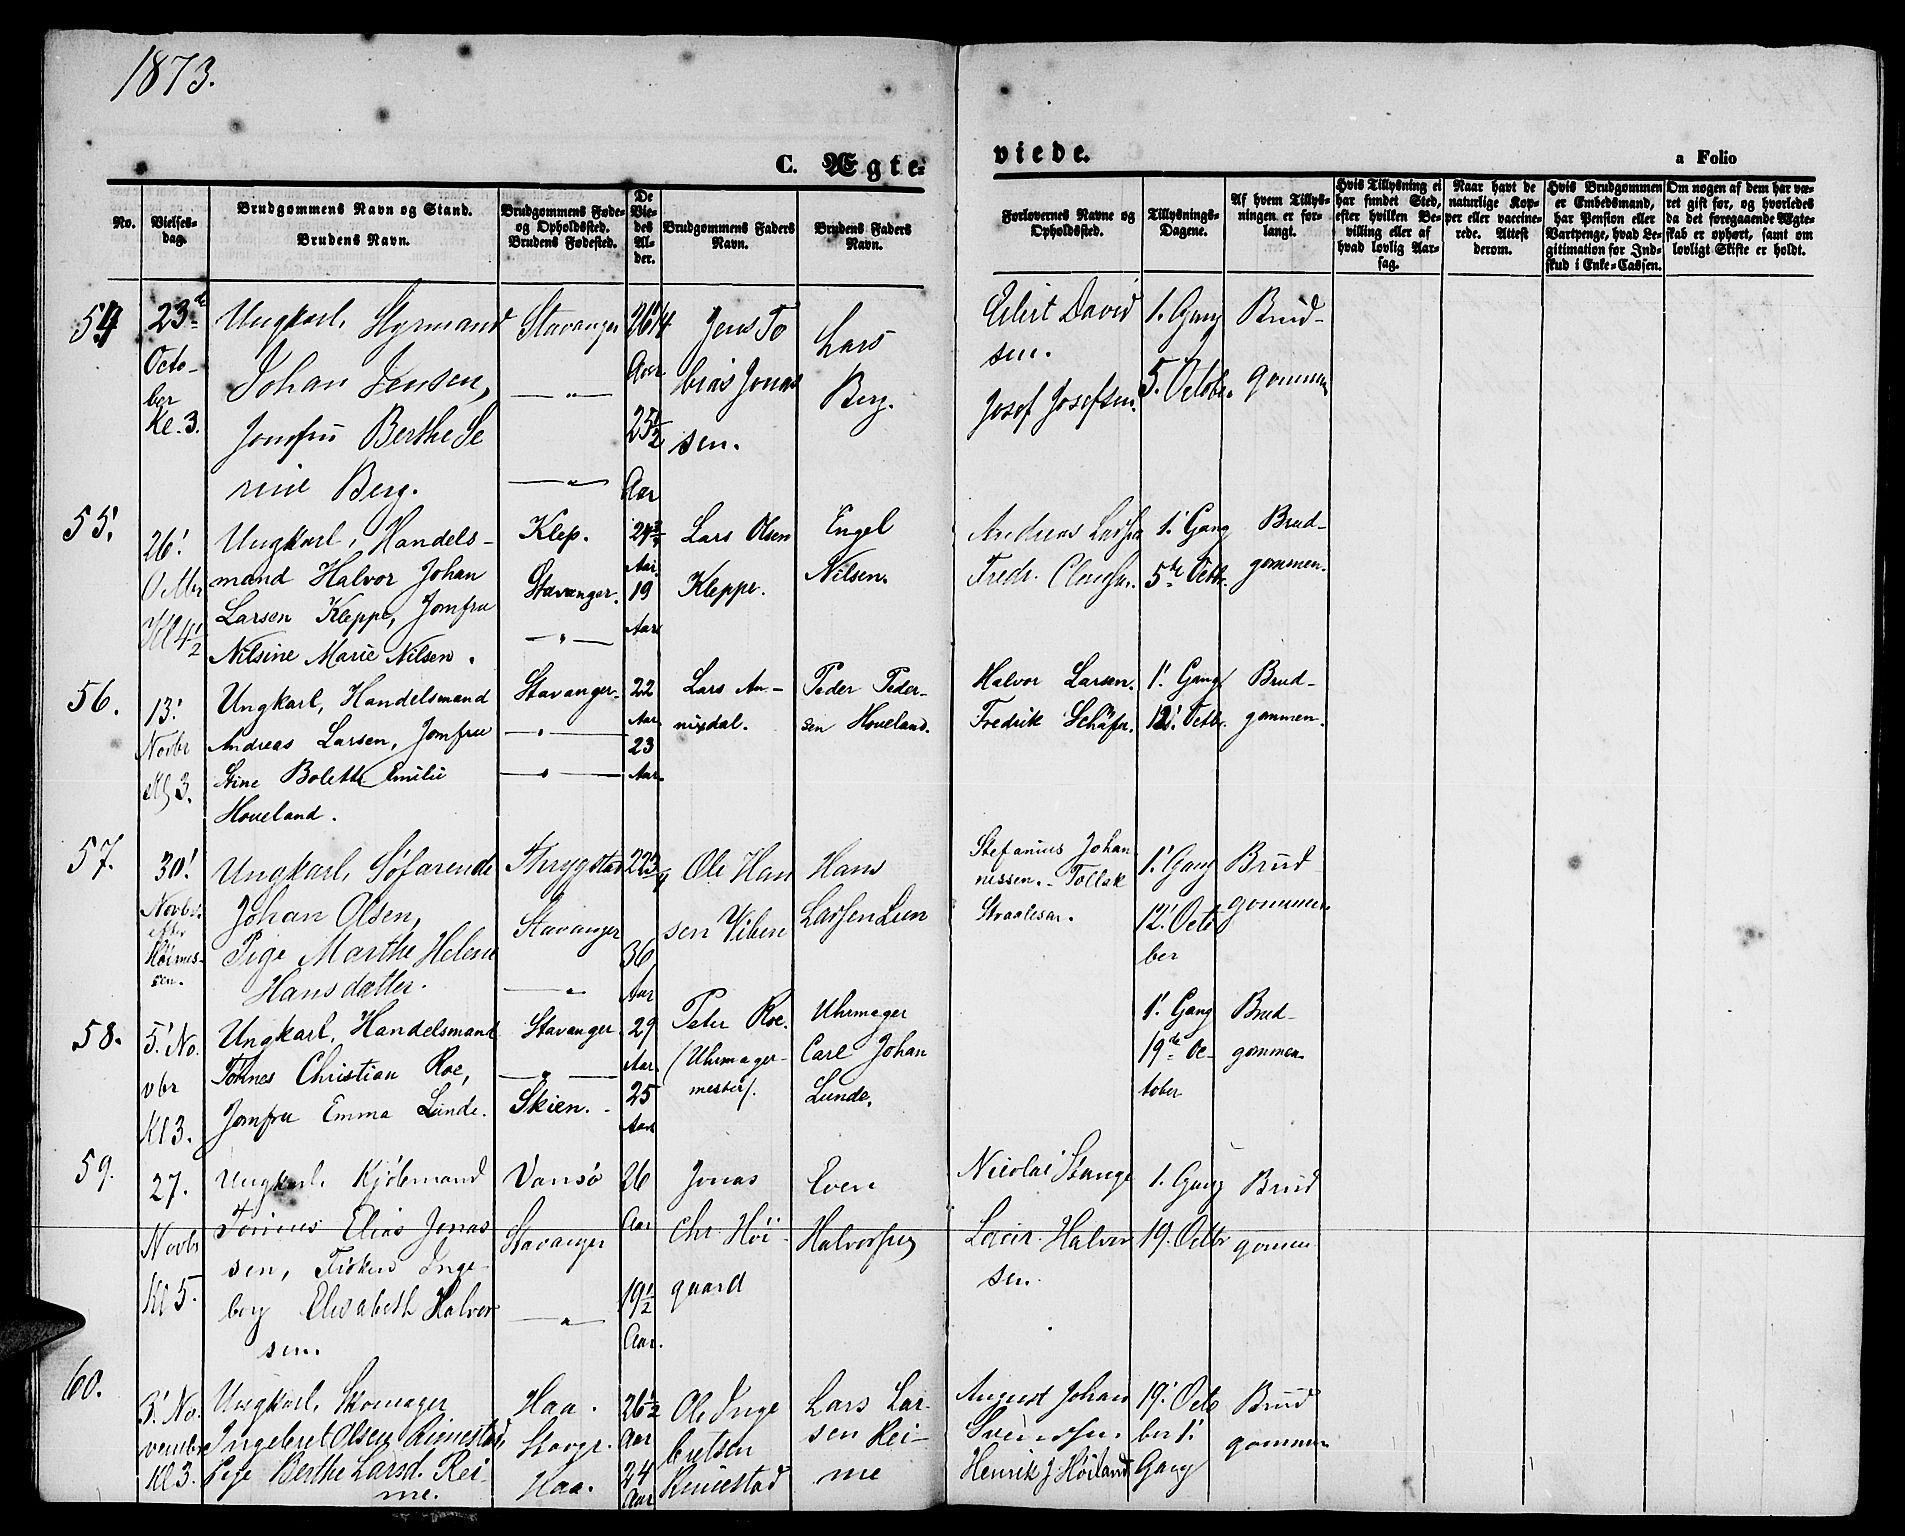 1873.
C. Ægte-
viede.
a Folio
No.
Vielses-
dag.
Brudgommens Navn og Stand.
Brudens Navn.
Brudgommens Føde-
og Opholdssted.
Brudens Fødested.
De
Vie-
des
Al-
der.
Brudgommens Faders
Navn.
Brudens Faders
Navn.
Forlovernes Navne og
Opholdssted.
Tillysnings-
Dagene.
Af hvem Tillys-
ningen er for-
langt.
Hvis Tillysning ei
har fundet Sted,
efter hvilken Be-
villing eller af
hvad lovlig Aar-
sag.
Naar havt de
naturlige Kop-
per eller vaccine-
rede. Attest
derom.
Hvis Brudgommen
er Embedsmand,
har Pension eller
Vartpenge, hvad Le-
gitimation for Ind-
skud i Enke-Cassen.
Om nogen af dem har væ-
ret gift før, og hvorledes
da det foregaaende Ægte-
skab er ophørt, samt om
lovligt Skifte er holdt.
54
23de
Octo-
ber
Kl. 3.
Ungkarl, Styrmand
Johan Jensen,
Jomfru Berthe Se
rine Berg.
Stavanger
—〃—
—〃—
26 1/4
Aar
25 1/2
Aar
Jens To
bias Jonas
sen.
Lars
Berg.
Eilert David
sen.
Josef Josefsen.
1. Gang
5. Octobr.
Brud-
gommen
55.
26.
Octbr
Kl 4 1/2
Ungkarl, Handels-
mand Halvor Johan
Larsen Kleppe, Jomfru
Nilsine Marie Nilsen.
Klep.
Stavanger.
—〃—
24 3/4
Aar.
19
Aar
Lars Olsen
Kleppe.
Engel
Nilsen.
Andreas Larsen
Fredr.
1. Gang
5te Octbr.
Brud-
gommen.
56.
13.
Novbr
Kl 3.
Ungkarl, Handelsmand
Andreas Larsen, Jomfru
Stine Bolette Emilie
Hoveland.
Stavanger.
—〃—
—〃—
22
Aar
23
Aar
Lars An-
nixdal.
Peder Peder-
sen Hoveland.
Halvor Larsen.
Fredrik Schäfer.
1. Gang
12. Octbr.
Brud-
gommen.
57.
30.
Novbr.
efter
Høimes-
sen.
Ungkarl, Søfarende
Johan Olsen,
Pige Marthe Helene
Hansdatter.
Thrygstad
Stavanger
—〃—
22 3/4
36
Aar
Ole Han
sen Viben
Hans
Larsen Lun
Stefanius Johan
nessen. - Tollak
1. Gang
12. Octo
ber
Brud
gommen
58.
5. No.
vbr
Kl 3.
Ungkarl, Handelsmand
Tønnes Christian Roe,
Jomfru Emma Lunde.
Stavanger.
—〃—
Skien.
29
Aar
25
Aar
Peter Roe.
(Uhrmager-
mester).
Uhrmager
Carl Johan
Lunde.
1. Gang
19de Oc-
tober
Brud-
gommen
59.
27.
Novbr
Kl 5.
Ungkarl, Kjøbmand
Tønnes Elias Jonas
sen, Frøken Inge-
borg Elisabeth Halvor
sen.
Vansø
Stavanger
—〃—
26
Aar
19 1/2
Aar.
Jonas
Chr. Høi-
gaard
Even
Halvorsen
Nicolai Stange
Halvor
sen.
1. Gang
19. Octbr
Brud
gommen
60.
5. No.
vembr
Kl 3.
Ungkarl, Skomager
Ingebret Olsen Rimestad,
Pige Berthe Larsd. Rei-
me.
Haa.
Stavgr.
Haa.
26 1/2
Aar
24
Aar
Ole Inge
bretsen
Rimestad
Lars Lar-
sen Rei-
me
August Johan
Svendsen
Henrik J Høiland
19. Octo
ber 1.
Gang
Brud
gommen